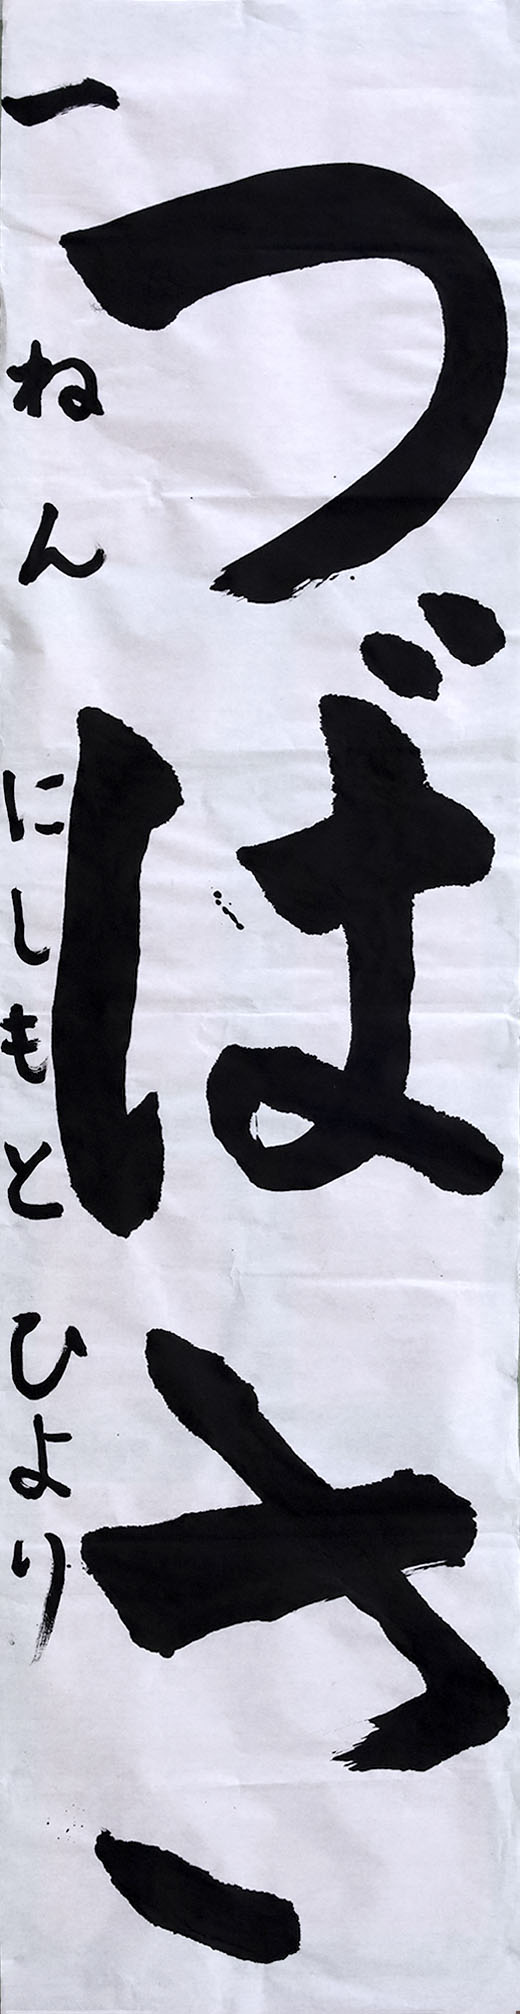 つばさ
一ねん にしもと ひより